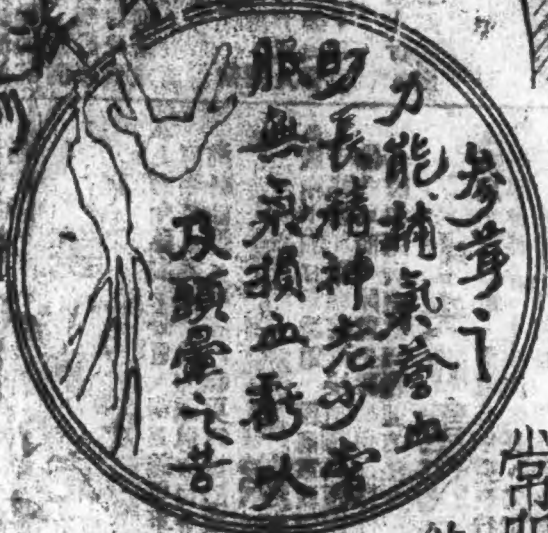 參茸之
力能補氣養血
助長精神老少常
服無氣損血虧以
及頭暈之苦
常